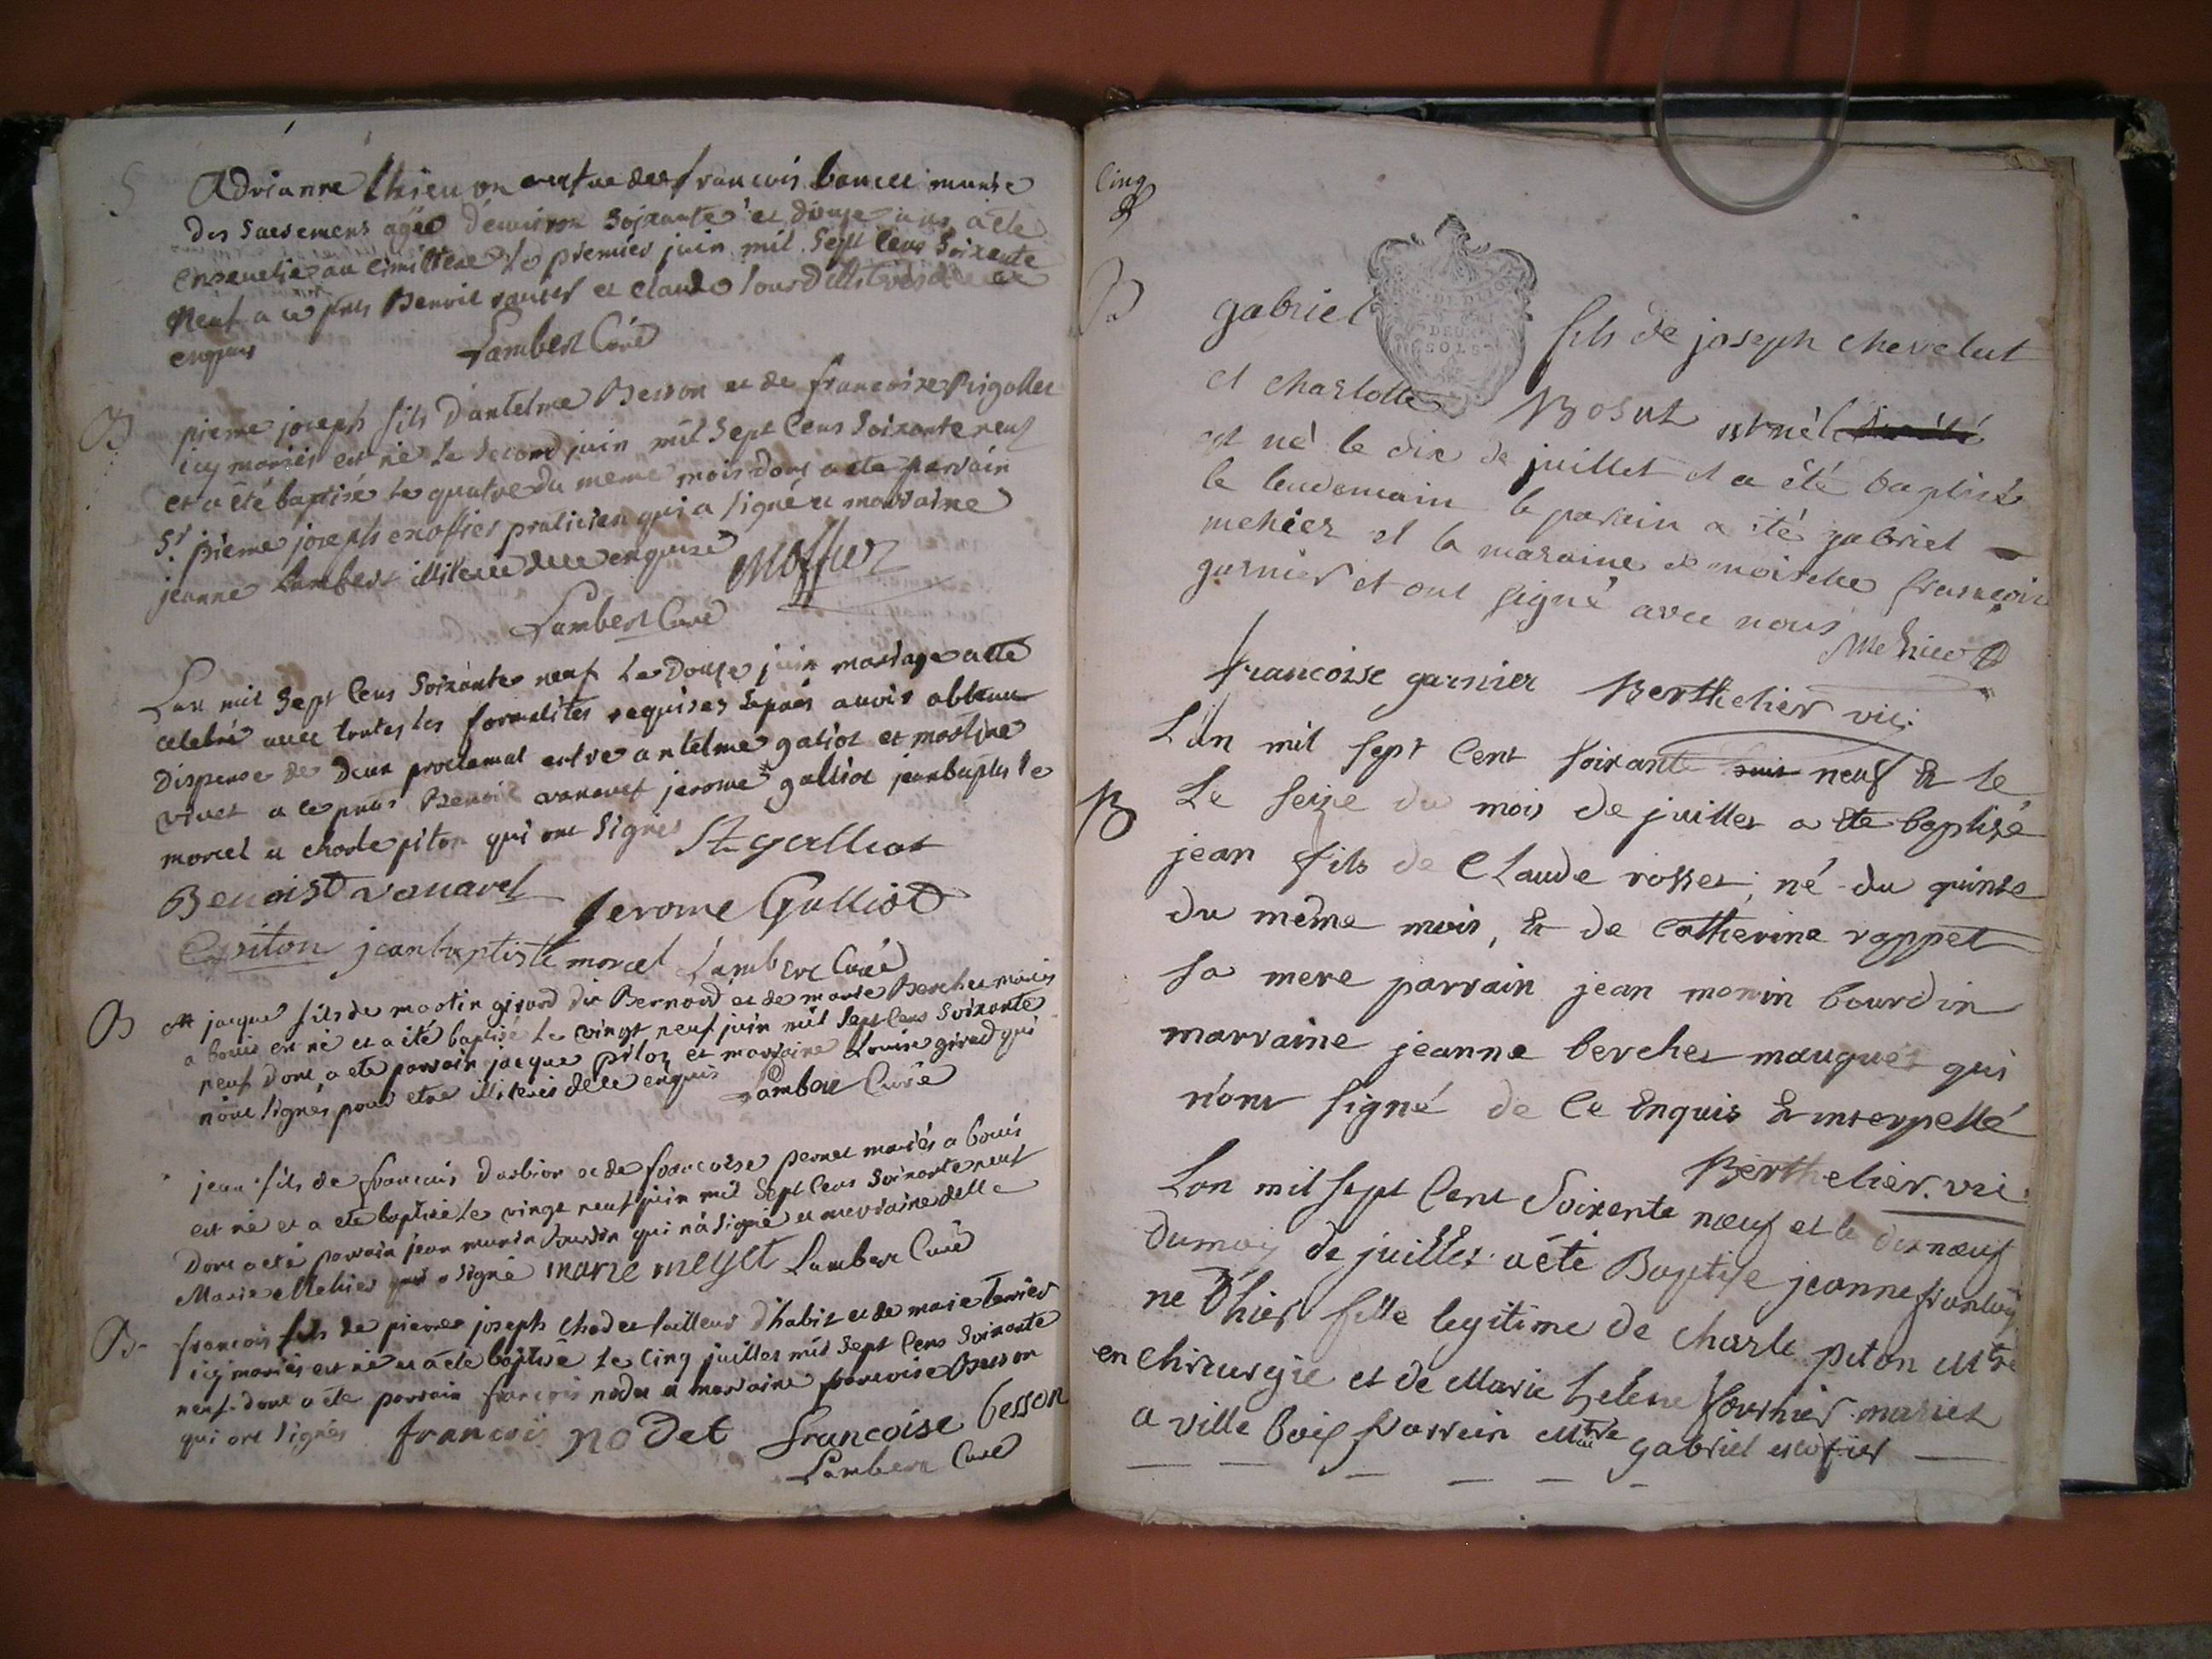 S
Adrianne thieuon veufue de françois boncu munie
des sacremens agée d'enuiron soixante et douze ans a été
enseuelie au cimitiere le premier juin mil sept cens soixante
neuf a ce pnts Benoit vanuel et claude
enquis
Lambert Curé
B
pierre joseph fils d'antelme Besson et de francoise Rigollet
icy mariés est né le second juin mil sept cens soixante neuf
et a été baptisé le quatre du meme mois dont a ete parrain
Sr pierre joseph exoffier praticien qui a signé et marraine
jeanne Lambert illiterée de ce enquise
exoffier
Lambert Curé
Lan mil sept cens soixante neuf le douze juin mariage a ete
celebré avec toutes les formalites requises apres avoir obtenu
dispense de deux proclamat entre antelme galiot et marline
vivet a ce pnts Benoit vanavet jerome galliot jean baptiste
morcel et charle piton qui ont signés
St galliot
Benoist vanavel
Jerome Galliot
C piton jean baptiste morcel Lambert Curé
B
jacque fils de martin girard dit Bernard et de marie Berchet mariés
a bouis est né et a été baptisé le vingt neuf juin mil sept cens soixante
neuf dont a ete parrain jacque piloz et marraine Louise girard qui
n'ont signés pour etre illiterés de ce enquis Lambert Curé
jean fils de francois darbion et de francoise pernet mariés a bouis
est né et a ete baptisé le vingt neuf juin mil sept cens soixante neuf
dont a eté parrain jean monin bourdin qui n'a signé et marraine delle
Marie Mehier qui a signé marie meyet Lambert Curé
B
francois fils de pierre joseph chodet tailleur d'habit et de marie terrier
icy mariés est né et a ete baptisé le cinq juillet mil sept cens soixante
neuf dont a ete parrain francois nodet et marraine francoise Besson
qui ont signés françois nodet francoise besson
Lambert Curé
Cinq
B
gabriel fils de joseph chevelut
DEUX
SOLS
et charlotte Bosut est né
est né le dix de juillet et a été baptisé
le lendemain le parain a été gabriel
mehier et la maraine demoiselle francoise
garnier et ont signé avec nous
Mehier
francoise garnier Berthelier vic.
L'an mil sept cent soixante neuf & le
B
Le seize du mois de juillet a ete baptisé
jean fils de Claude rosset, né du quinze
du même mois, & de Catherine rappet
sa mere parrain jean monin bourdin
marraine jeanne berchet mauguet qui
n'ont signé de Ce Enquis & interpellé
Berthelier. vic.
Lan mil sept Cent Soixente nœuf et le dixnœuf
du moy de juillet a été Baptise jeanne francoi
ne d'hier fille legitime de charle piton Mtre
en chirurgie et de Marie helene fournier mariez
a ville bois parrein Mtre gabriel escofier